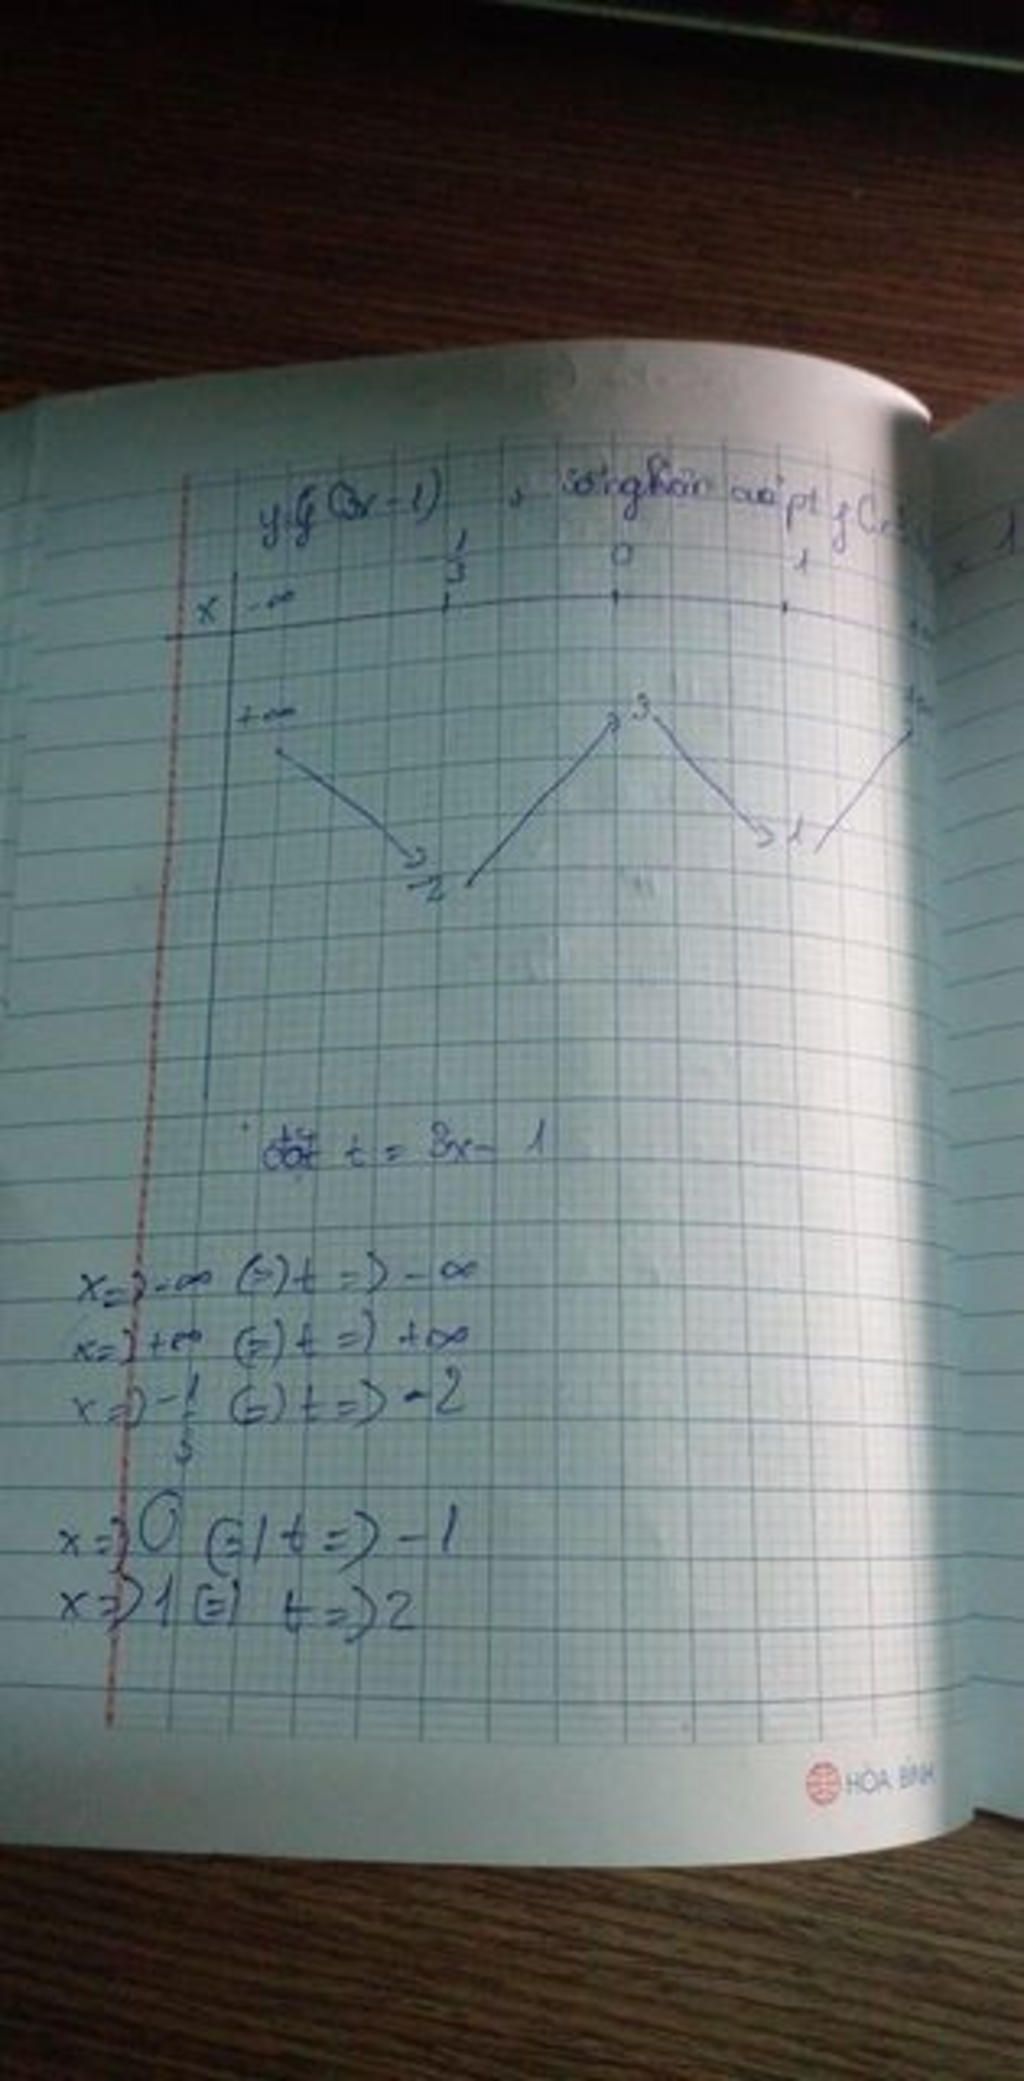 y f(3x-1) , số nghiệm của pt f(
x -∞ -1/3 0 1
+∞ -2 3 1
đặt t = 3x - 1
x => -∞ (=) t => -∞
x => +∞ (=) t => +∞
x => -1/3 (=) t => -2
x => 0 (=) t => -1
x => 1 (=) t => 2
HÒA BÌNH